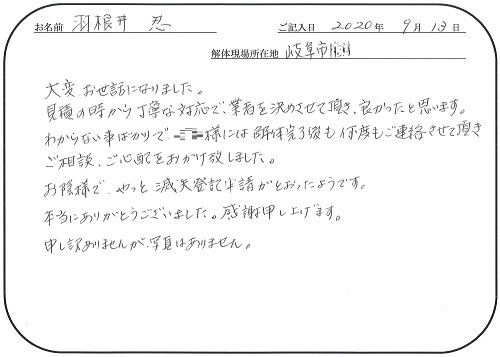 お名前 羽根井 忍 ご記入日 2020年 9月 13日
解体現場所在地 岐阜市
大変、お世話になりました。
見積の時から丁寧な対応で、業者を決めさせて頂き、良かったと思います。
わからない事ばかりで 様には解体完了後も何度もご連絡させて頂き
ご相談、ご心配をおかけ致しました。
お陰様で、やっと滅失登記申請がとおったようです。
本当にありがとうございました。感謝申し上げます。
申し訳ありませんが、写真はありません。